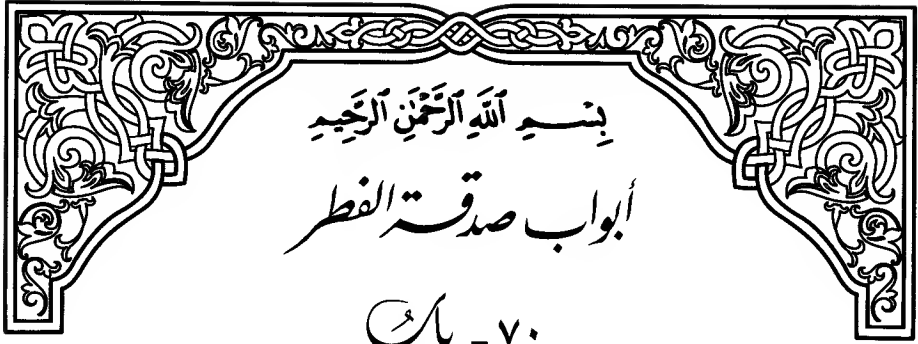 بِسْمِ ٱللَّهِ ٱلرَّحْمَٰنِ ٱلرَّحِيمِ
أبواب صدقة الفطر
٧٠ - بابُ